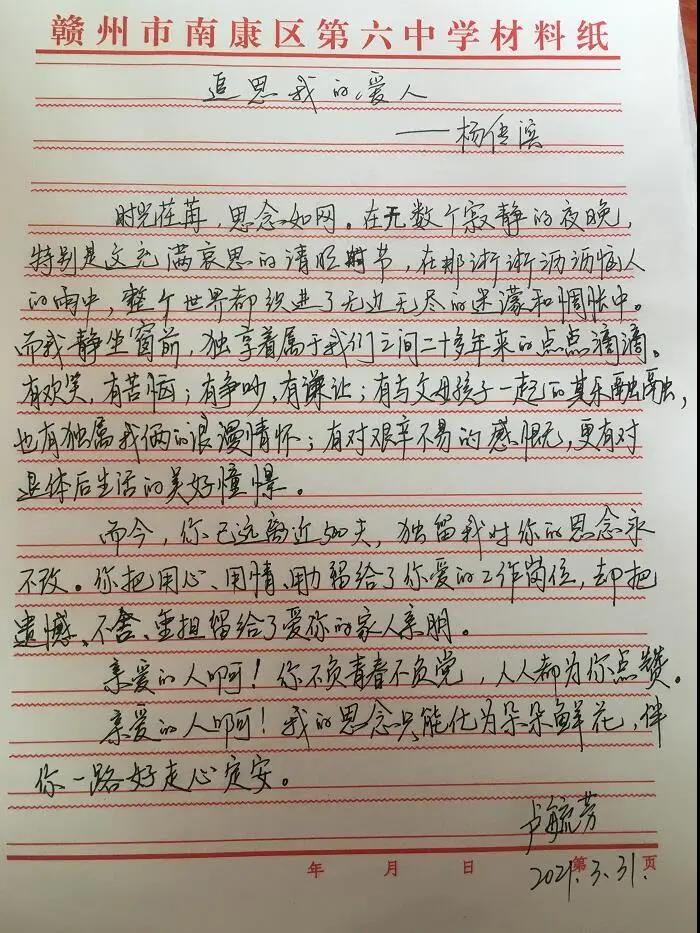 赣州市南康区第六中学材料纸
追思我的爱人
——杨传滨
时光荏苒，思念如网。在无数个寂静的夜晚，
特别是这充满哀思的清明时节，在那淅淅沥沥恼人
的雨中，整个世界都织进了无边无尽的迷濛和惆怅中。
而我静坐窗前，独享着属于我们之间二十多年来的点点滴滴。
有欢笑，有苦恼；有争吵，有谦让；有与父母孩子一起的其乐融融，
也有独属我俩的浪漫情怀；有对艰辛不易的感慨，更有对
退休后生活的美好憧憬。
而今，你已远离近500天，独留我对你的思念永
不改。你把用心、用情、用力留给了你爱的工作岗位，却把
遗憾、不舍、重担留给了爱你的家人亲朋。
亲爱的人啊！你不负青春不负党，人人都为你点赞。
亲爱的人啊！我的思念只能化为朵朵鲜花，伴
你一路好走心定安。
卢毓芳
年 月 日 第 页
2021.3.31.